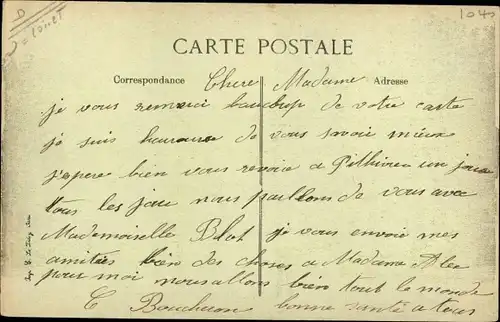 D
Loiret
1040
CARTE POSTALE
Correspondance Chere Madame Adresse
je vous remerci baucoup de votre carte
je suis heureuse de vous savoir mieux
j'espere bien vous revoir a Pithivier un jour
tous les jour nous parlons de vous avec
Mademoiselle Blot je vous envoie mes
amitiés bien des choses a Madame
pour moi nous allons bien tout le monde
C Bouchuron bonne santé a tous